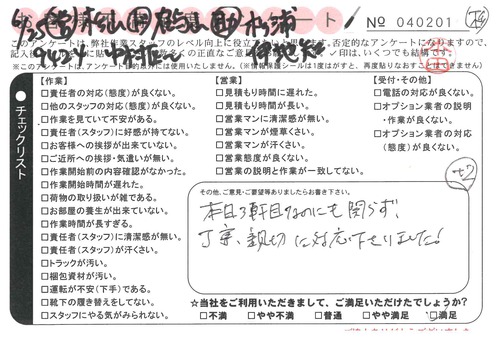 ート No 040201
このアンケートは、弊社作業スタッフのレベル向上に役立
※このアンケートは、
【作業】
□責任者の対応(態度)が良くない。
□他のスタッフの対応(態度)が良くない。
□作業を見ていて不安がある。
□責任者(スタッフ)に好感が持てない。
□お客様への挨拶が出来ていない。
□ご近所への挨拶・気遣いが無い。
□作業開始前の内容確認がなかった。
□作業開始時間が遅れた。
□荷物の取り扱いが雑である。
□お部屋の養生が出来ていない。
□作業時間が長すぎる。
□責任者(スタッフ)に清潔感が無い。
□責任者(スタッフ)が汗くさい。
□トラックが汚い。
□梱包資材が汚い。
□運転が不安(下手)である。
□靴下の履き替えをしてない。
□スタッフにやる気がみられない。
チェックリスト
【営業】
□見積もり時間に遅れた。
□見積もり時間が長い。
□営業マンに清潔感が無い。
□営業マンが煙草くさい。
□営業マンが汗くさい。
□営業態度が良くない。
□営業の説明と作業が一致してない。
【受付・その他】
□電話の対応が良くない。
□オプション業者の説明
・作業が良くない。
□オプション業者の対応
(態度)が良くない。
その他、ご意見・ご要望等ありましたらお書き下さい。
本日3軒目なのにも関らず、
丁寧、親切に対応下さりました!
☆当社をご利用いただきまして、ご満足いただけたでしょうか?
□不満 □やや不満 □普通 □やや満足 □満足